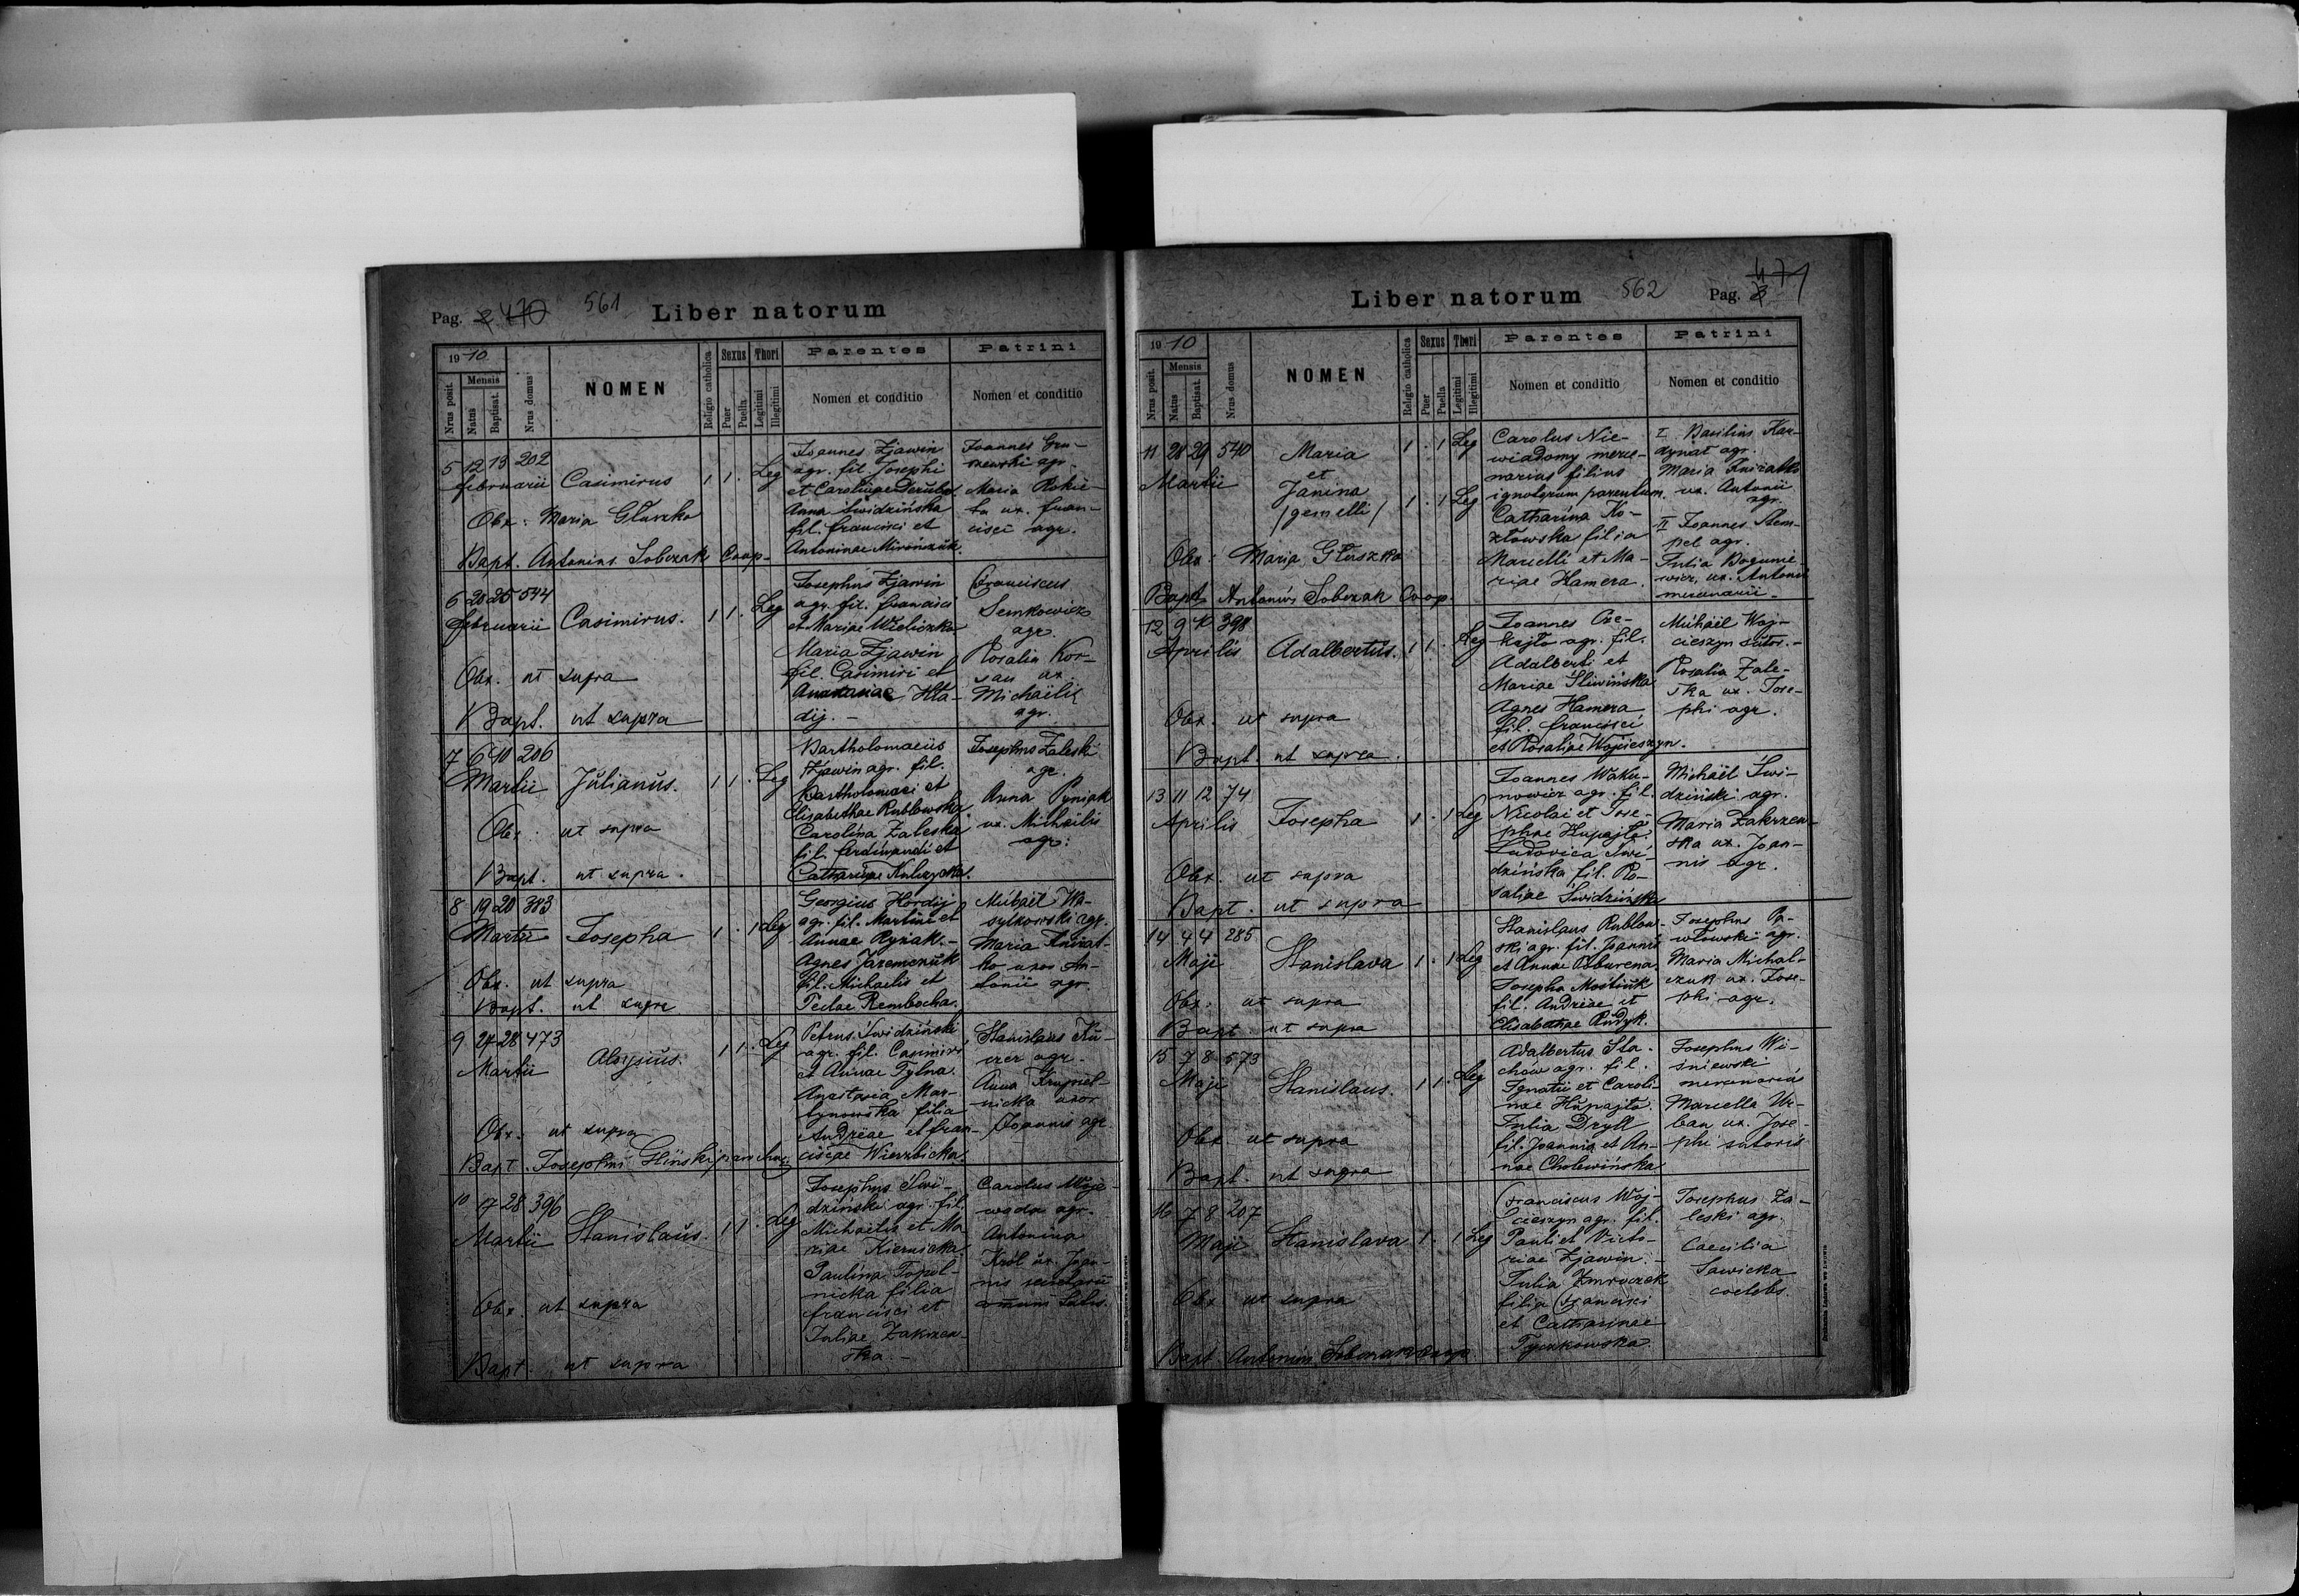 Pag. 2 470 561 Liber natorum
1910
Nrus posit.
Mensis
Natus
Baptisat.
Nrus domus
NOMEN
Religio catholica
Sexus
Puer
Puella
Thori
Legitimi
Illegitimi
Parentes
Nomen et conditio
Patrini
Nomen et conditio
5 12 13 202
februarii Casimirus 1 1. Leg
Obx: Maria Głuszko
Bapt. Antonius Sobczak Coop.
Joannes Zjawin
agr. fil. Josephi
et Carolinae
Anna Swidzińska
fil. francisci et
Antoninae
Joannes Gru-
szewski agr.
Maria Rokie-
ta ux. fran-
cisci agr.
6 20 25 544
februarii Casimirus. 1 1. Leg
Obx. ut supra
Bapt. ut supra
Josephus Zjawin
agr. fil. francisci
et Mariae Wieliczko
Maria Zjawin
fil. Casimiri et
Hła-
dij. -
Franciscus
Semkowicz
agr.
Rosalia Kor-
san ux.
Michaëlis
agr.
7 6 10 206
Martii Julianus. 1 1. Leg
Obx: ut supra
Bapt. ut supra.
Bartholomaeus
Zjawin agr. fil.
Bartholomaei et
Elisabethae Rublowska
Carolina Zaleska
fil. ferdinandi et
Catharinae
Josephus Zaleski
agr.
Anna Pyniak
ux. Michaëlis
agr.
8 19 20 383
Martii Josepha 1 . 1 Leg
Obx. ut supra
Bapt. ut supra
Georgius Hordij
agr. fil. Martini et
Annae
Agnes Jaremczuk
fil. Michaelis et
Teclae Rembocha.
Michaël Wa-
sylkowski agr.
Maria
ko uxor An-
tonii agr.
9 27 28 473
Martii Aloysius. 1 1. Leg
Obx. ut supra
Bapt. Josephus Gliński parochus
Petrus Swidziński
agr. fil. Casimiri
et Annae Tylna.
Anastasia Mar-
tynowska filia
Andreae et fran-
ciscae Wierzbicka.
Stanislaus Ku-
czer agr.
Anna
nicka uxor
Joannis agr.
10 17 28 396
Martii Stanislaus. 1 1. Leg
Obx. ut supra
Bapt. ut supra
Josephus Swi-
dziński agr. fil.
Michaelis et Ma-
riae Kiernicka
Paulina Topol-
nicka filia
francisci et
Juliae Zakrzew-
ska. -
Carolus Woje-
woda agr.
Antonina
Król ux. Joan-
nis
Liber natorum 562 Pag. 3 471
1910
Nrus posit.
Mensis
Natus
Baptisat.
Nrus domus
NOMEN
Religio catholica
Sexus
Puer
Puella
Thori
Legitimi
Illegitimi
Parentes
Nomen et conditio
Patrini
Nomen et conditio
11 28 29 540 Maria 1 . 1 Leg
Martii et
Janina 1 . 1 Leg
/gemelli/
Obx: Maria Głuszko
Bapt. Antonius Sobczak Coop.
Carolus Nie-
wiadomy merce-
narius filius
ignotorum parentum.
Catharina Ko-
złowska filia
Marcelli et Ma-
riae Hamera.
I. Basilius Kar-
dynał agr.
Maria
ux. Antonii
agr.
II Joannes Stem-
pel agr.
Julia Bogunie-
wicz, ux. Antonii
mercenarii.
12 9 10 398
Aprilis Adalbertus. 1 1. Leg
Obx. ut supra
Bapt. ut supra.
Joannes Cze-
kajło agr. fil.
Adalberti et
Mariae Sliwińska
Agnes Hamera
fil. francisci
et Rosaliae Wojcieszyn.
Michaël Woj-
cieszyn sutor. -
Rosalia Zale-
ska ux. Jose-
phi agr.
13 11 12 74
Aprilis Josepha 1 . 1 Leg
Obx. ut supra
Bapt. ut supra
Joannes Waku-
nowicz agr. fil.
Nicolai et Jose-
phae Hupajło.
Ludovica Swi-
dzińska fil. Ro-
saliae Swidzińska
Michaël Swi-
dziński agr.
Maria Zakrzew-
ska ux. Joan-
nis agr.
14 4 4 285
Maji Stanislava 1 . 1 Leg
Obx. ut supra
Bapt. ut supra
Stanislaus Rublow-
ski agr. fil. Joannis
et Annae
Josepha
fil. Andreae et
Elisabethae Rudyk.
Josephus Pa-
włowski agr.
Maria Michal-
czuk ux. Jose-
phi agr.
15 7 8 573
Maji Stanislaus. 1 1. Leg
Obx ut supra
Bapt. ut supra
Adalbertus Sta-
chów agr. fil.
Ignatii et Caroli-
nae Hupajło.
Julia Dryll
fil. Joannis et An-
nae Cholewińska
Josephus Wi-
śniewski
mercenarius
Marcella Ur-
ban ux. Jose-
phi sutoris
16 7 8 207
Maji Stanislava 1 . 1 Leg
Obx. ut supra
Bapt. Antonius Sobczak Coop
Franciscus Woj-
cieszyn agr. fil.
Pauli et Victo-
riae Zjawin.
Julia Zmroczek
filia francisci
et Catharinae
Tyczkowska
Josephus Za-
leski agr.
Caecilia
Sawicka
coelebs.